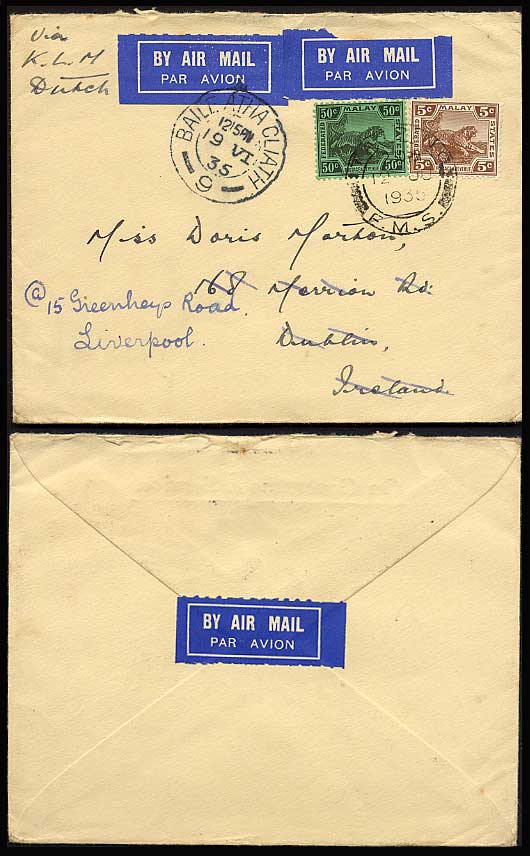 Via
K.L.M
Dutch
BY AIR MAIL
PAR AVION
BY AIR MAIL
PAR AVION
BAILE ATHA CLIATH
1215PM
19 VI
35
9
50c 50c
MALAY
FEDERATED STATES
50c 50c
5c 5c
MALAY
FEDERATED STATES
5c 5c
1935
F.M.S.
Miss Doris Morton,
168 Merrion Rd.
Dublin,
Ireland
@ 15 Greenheys Road,
Liverpool.
BY AIR MAIL
PAR AVION